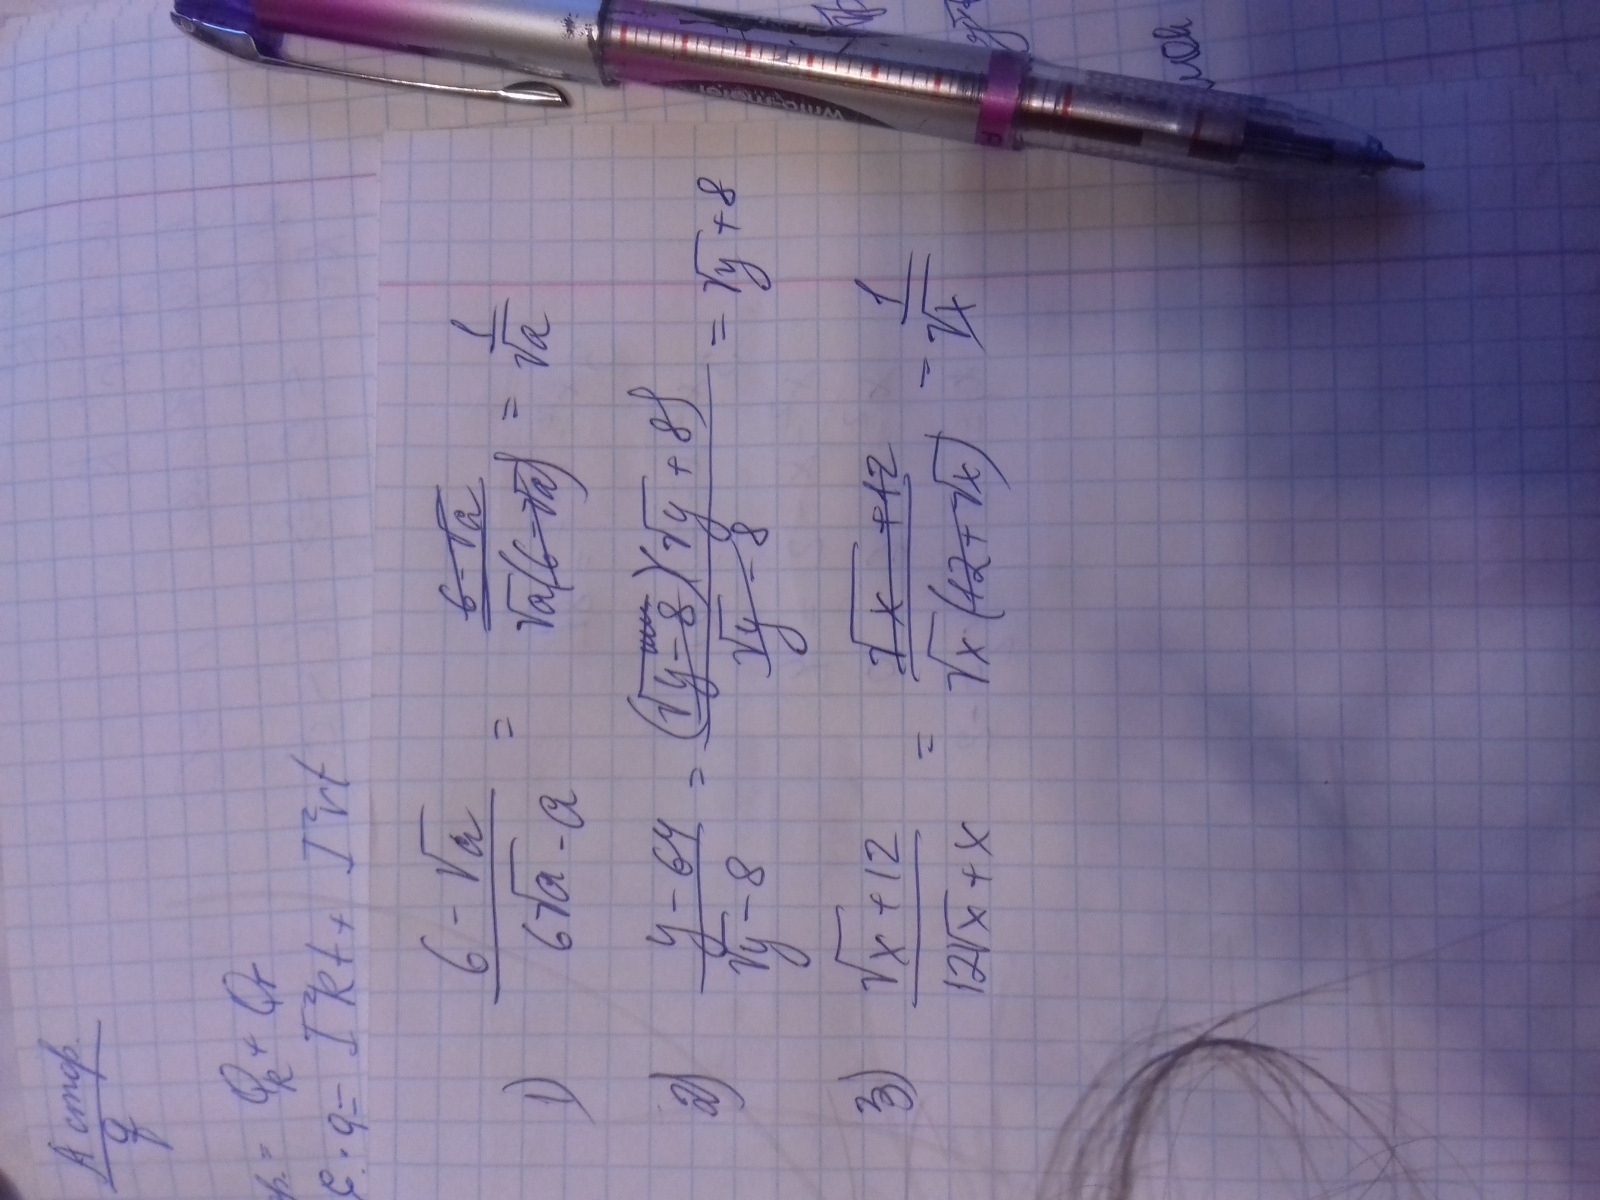 A стор.
q
= Qk + Qr
ε · q = I²Rt + I²rt
1) (6 - √a)/(6√a - a) = (6 - √a)/(√a(6 - √a)) = 1/√a
2) (y - 64)/(√y - 8) = ((√y - 8)(√y + 8))/(√y - 8) = √y + 8
3) (√x + 12)/(12√x + x) = (√x + 12)/(√x(12 + √x)) = 1/√x